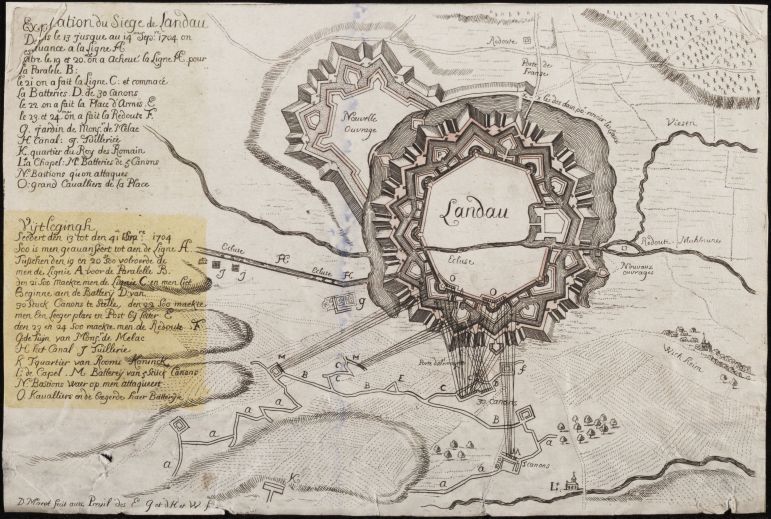 Explication du Siege de Landau
Dés le 13 jusque au 14 Sepr. 1704 on
avance a la Ligne A
Entre le 19 et 20. on a Acheué la Ligne A pour
la Paralele B:
le 21 on a fait la Ligne C: et commacé
La Batteries D. de 30 Canons
le 22 on a fait la Place d'Armes E
le 23. et 24. on a fait la Redoute F.
G. jardin de Mons. de Melac
H Canal: g. Tuillerie
K quartier du Roy des Romain
L: a Chapel: M. Batteries de 5 Canons
N. Bastions qu on attaque
O: grand Cavalliers de la Place
Vÿtlegingh
Seebert den 13 tot den 1704
Soo is men geauanseert tot aen de Ligne A
Tusschen den 19 en 20 Soo volvoerde
men de Lignie A voor de Paralelle B.
den 21 Soo maekte men de Lignie C en men liet
beginne aen de Batterÿ D van
30 Stuck Canons te den 22 Soo maekte
men Een leeger plaes en Post bÿ leter E
den 23 en 24 Soo maekte men de Redoute F
G de Tuÿn van Mons. de Melac
H het Canal J Tuillerie
K T quartier van Rooms Koninck
L: de Capel. M. Batterÿ van 5 Stuck Canons
N. Bastions waer op men attaqueert
O Kavalliers
Redoute
Porte de Franse
Nouvelle
Ouvrage
Viesen
Landau
Redoute
Nouvaux
ouvrages
Ecluse
Ecluse
Ecluse
A
A
J
J
g
O
O
N
N
M
M
M
C
C
B
B
B
B
E
f
30 Canons
5 canons
a
a
a
a
a
a
a
K
L.
D Marot fait aux de H et W F.